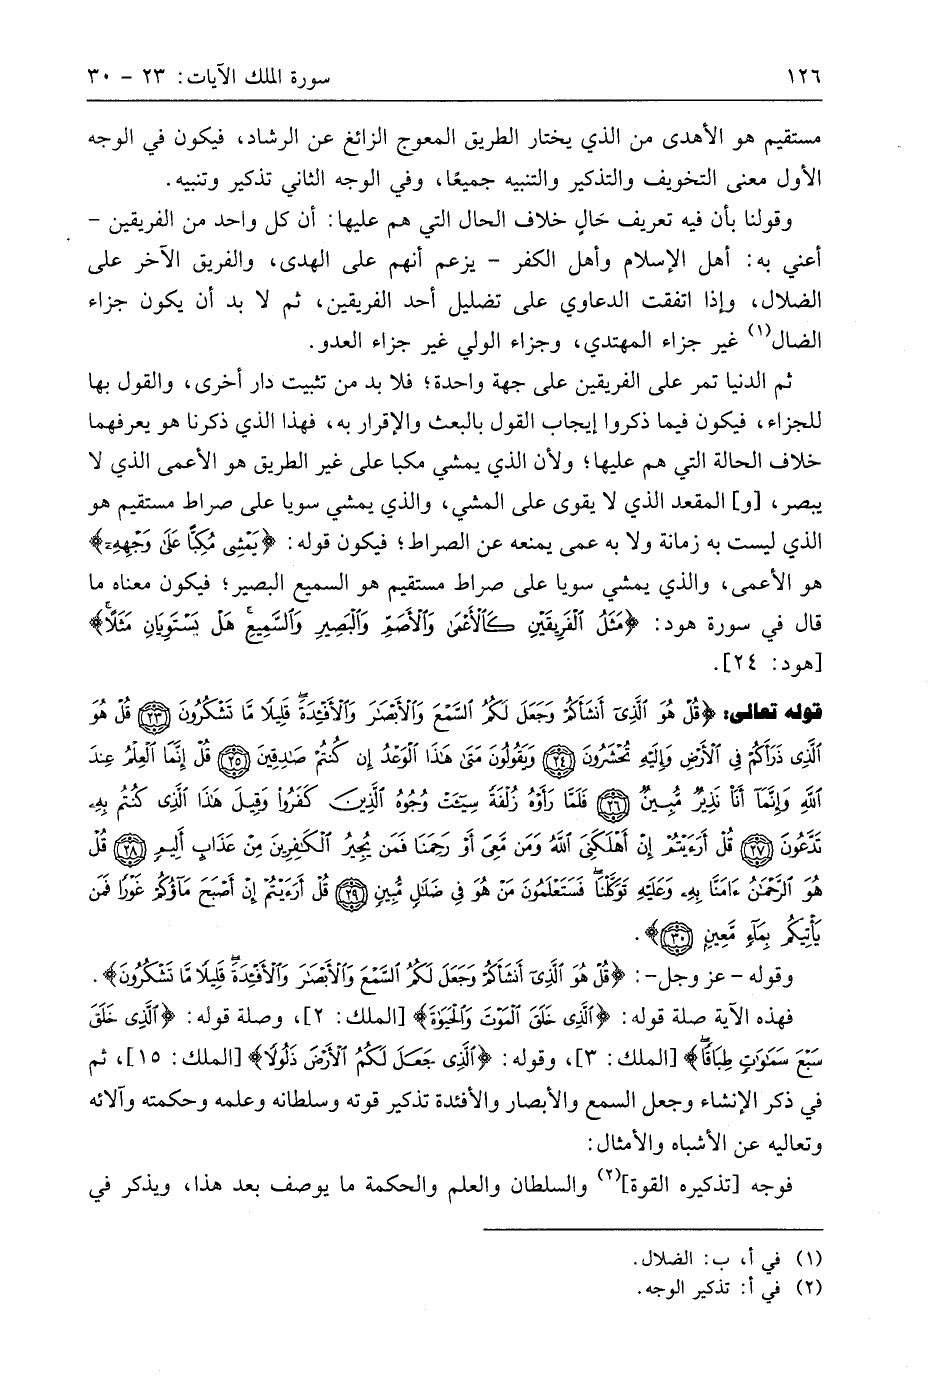 ١٢٦ سورة الملك الآيات: ٢٣ - ٣٠
مستقيم هو الأهدى من الذي يختار الطريق المعوج الزائغ عن الرشاد، فيكون في الوجه
الأول معنى التخويف والتذكير والتنبيه جميعًا، وفي الوجه الثاني تذكير وتنبيه.
وقولنا بأن فيه تعريف حَالٍ خلاف الحال التي هم عليها: أن كل واحد من الفريقين -
أعني به: أهل الإسلام وأهل الكفر - يزعم أنهم على الهدى، والفريق الآخر على
الضلال، وإذا اتفقت الدعاوي على تضليل أحد الفريقين، ثم لا بد أن يكون جزاء
الضال(١) غير جزاء المهتدي، وجزاء الولي غير جزاء العدو.
ثم الدنيا تمر على الفريقين على جهة واحدة؛ فلا بد من تثبيت دار أخرى، والقول بها
للجزاء، فيكون فيما ذكروا إيجاب القول بالبعث والإقرار به، فهذا الذي ذكرنا هو يعرفهما
خلاف الحالة التي هم عليها؛ ولأن الذي يمشي مكبا على غير الطريق هو الأعمى الذي لا
يبصر، [و] المقعد الذي لا يقوى على المشي، والذي يمشي سويا على صراط مستقيم هو
الذي ليست به زمانة ولا به عمى يمنعه عن الصراط؛ فيكون قوله: ﴿يَمْشِى مُكِبًّا عَلَىٰ وَجْهِهِۦٓ﴾
هو الأعمى، والذي يمشي سويا على صراط مستقيم هو السميع البصير؛ فيكون معناه ما
قال في سورة هود: ﴿مَثَلُ ٱلْفَرِيقَيْنِ كَٱلْأَعْمَىٰ وَٱلْأَصَمِّ وَٱلْبَصِيرِ وَٱلسَّمِيعِۚ هَلْ يَسْتَوِيَانِ مَثَلًاۚ﴾
[هود: ٢٤].
قوله تعالى: ﴿قُلْ هُوَ ٱلَّذِىٓ أَنشَأَكُمْ وَجَعَلَ لَكُمُ ٱلسَّمْعَ وَٱلْأَبْصَٰرَ وَٱلْأَفْـِٔدَةَۖ قَلِيلًا مَّا تَشْكُرُونَ (٢٣) قُلْ هُوَ
ٱلَّذِى ذَرَأَكُمْ فِى ٱلْأَرْضِ وَإِلَيْهِ تُحْشَرُونَ (٢٤) وَيَقُولُونَ مَتَىٰ هَٰذَا ٱلْوَعْدُ إِن كُنتُمْ صَٰدِقِينَ (٢٥) قُلْ إِنَّمَا ٱلْعِلْمُ عِندَ
ٱللَّهِ وَإِنَّمَآ أَنَا۠ نَذِيرٌ مُّبِينٌ (٢٦) فَلَمَّا رَأَوْهُ زُلْفَةً سِيٓـَٔتْ وُجُوهُ ٱلَّذِينَ كَفَرُوا۟ وَقِيلَ هَٰذَا ٱلَّذِى كُنتُم بِهِۦ
تَدَّعُونَ (٢٧) قُلْ أَرَءَيْتُمْ إِنْ أَهْلَكَنِىَ ٱللَّهُ وَمَن مَّعِىَ أَوْ رَحِمَنَا فَمَن يُجِيرُ ٱلْكَٰفِرِينَ مِنْ عَذَابٍ أَلِيمٍ (٢٨) قُلْ
هُوَ ٱلرَّحْمَٰنُ ءَامَنَّا بِهِۦ وَعَلَيْهِ تَوَكَّلْنَاۖ فَسَتَعْلَمُونَ مَنْ هُوَ فِى ضَلَٰلٍ مُّبِينٍ (٢٩) قُلْ أَرَءَيْتُمْ إِنْ أَصْبَحَ مَآؤُكُمْ غَوْرًا فَمَن
يَأْتِيكُم بِمَآءٍ مَّعِينٍۭ (٣٠)﴾.
وقوله - عز وجل -: ﴿قُلْ هُوَ ٱلَّذِىٓ أَنشَأَكُمْ وَجَعَلَ لَكُمُ ٱلسَّمْعَ وَٱلْأَبْصَٰرَ وَٱلْأَفْـِٔدَةَۖ قَلِيلًا مَّا تَشْكُرُونَ﴾.
فهذه الآية صلة قوله: ﴿ٱلَّذِى خَلَقَ ٱلْمَوْتَ وَٱلْحَيَوٰةَ﴾ [الملك: ٢]، وصلة قوله: ﴿ٱلَّذِى خَلَقَ
سَبْعَ سَمَٰوَٰتٍ طِبَاقًاۖ﴾ [الملك: ٣]، وقوله: ﴿ٱلَّذِى جَعَلَ لَكُمُ ٱلْأَرْضَ ذَلُولًا﴾ [الملك: ١٥]، ثم
في ذكر الإنشاء وجعل السمع والأبصار والأفئدة تذكير قوته وسلطانه وعلمه وحكمته وآلائه
وتعاليه عن الأشباه والأمثال:
فوجه [تذكيره القوة](٢) والسلطان والعلم والحكمة ما يوصف بعد هذا، ويذكر في
(١) في أ، ب: الضلال.
(٢) في أ: تذكير الوجه.